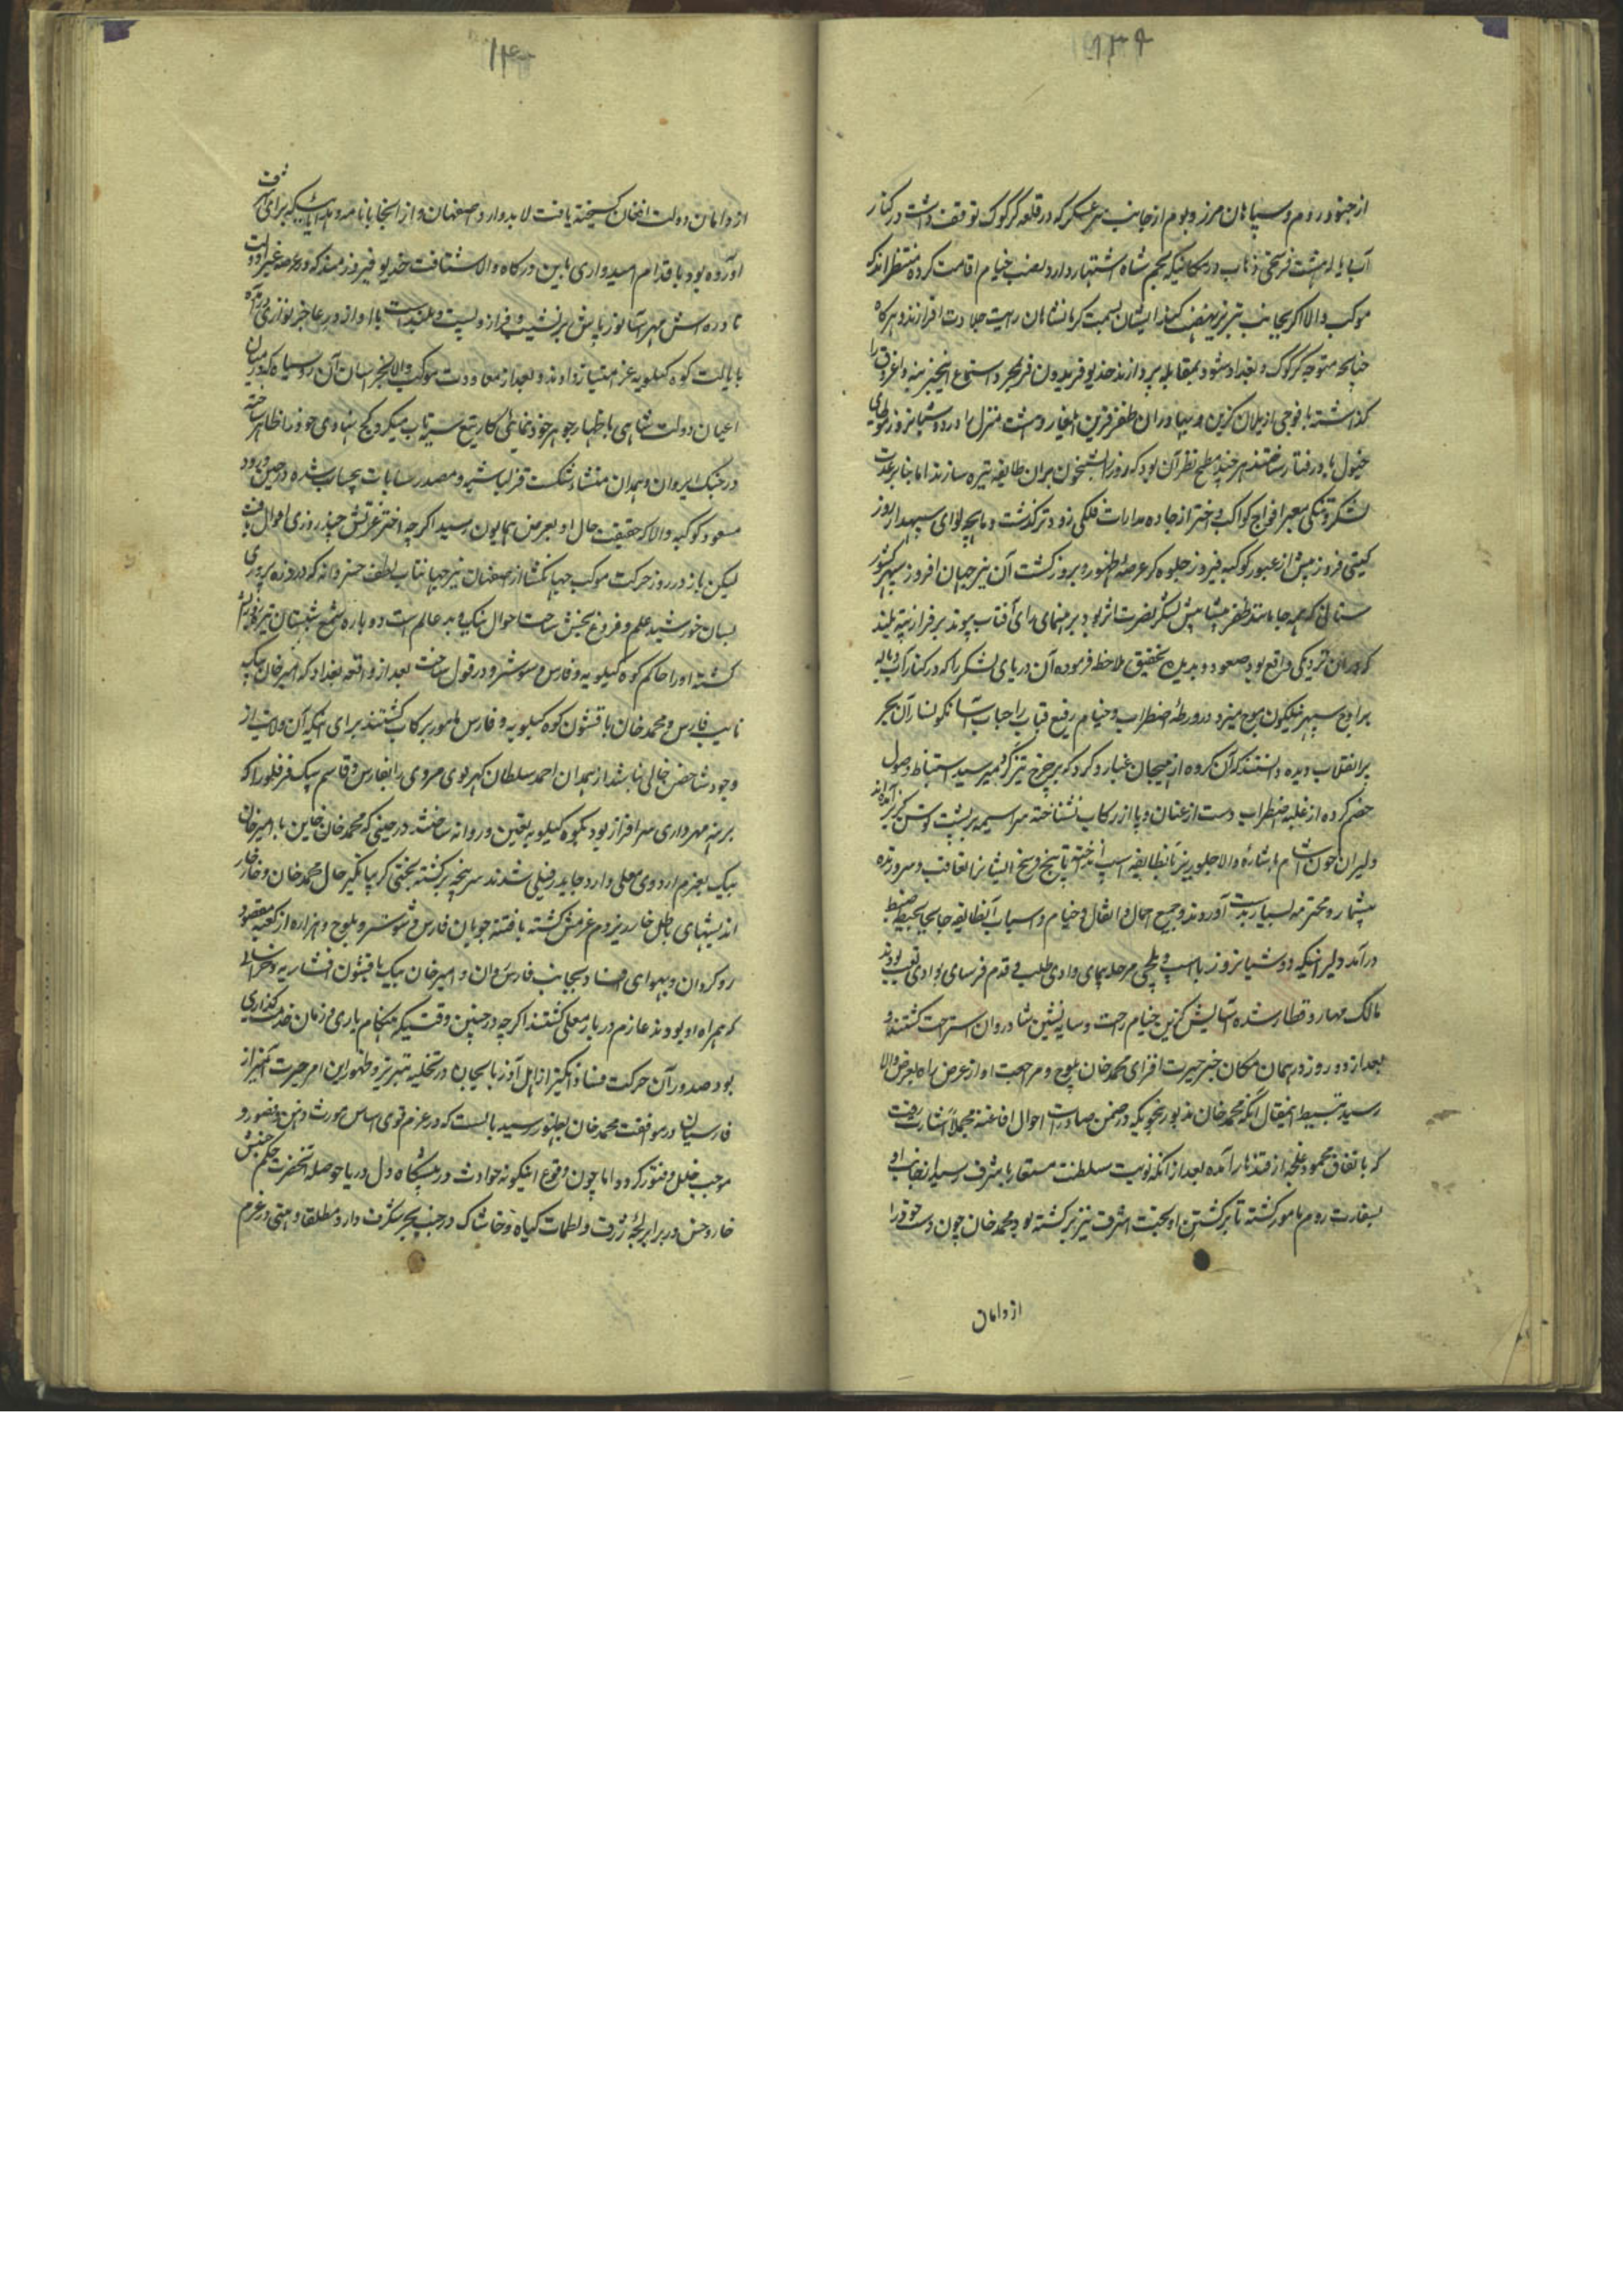 ۱۳۹
از جنود روم و سپاهان مرز و بوم از جانب سرعسکر که در قلعه کرکوک توقف داشت در کنار
آب دیاله هشت فرسخی ذهاب در مکانیکه بعجم شاه اشتهار دارد نصب خیام اقامت کرده منتظراند که
موکب والا اگر بجانب تبریز نهضت کند ایشان بسمت کرمانشاهان رایت جلادت افرازند و هرگاه
چنانچه متوجه کرکوک و بغداد شود بمقابله پردازند خدیو فریدون فر بمجرد استماع اینخبر بنه و اغروق را
گذاشته با فوجی از یلان گزین و بهادران ظفر قرین ایلغار و هشت منزل را در دو شبانروز طی
خیول بادرفتار ساختند هر چند مطمح نظر آن بود که روز را شبیخون بران طایفه تیره سازند اما بنا بر عدت
لشکر و تنگی معبر افواج کواکب و اختر از جاده مدارات فلکی زودتر گذشت و ماهچه لوای سپهدار روز
گیتی فروز پیش از عبور کوکبه فیروز جلوه گر عرصه ظهور و بروز گشت آن نیر جهان افروز سپهر کشور
ستانی که همه جا مانند ظفر پیشاپیش لشکر نصرت اثر بود برهنمای رای آفتاب پیوند بر فراز تپه بلند
که دران نزدیکی واقع بود صعود و بدیده تحقیق ملاحظه فرموده آن دریای لشکر را که در کنار آب دیاله
بر اوج سپهر نیلگون موج میزد در ورطه اضطراب و خیام رفیع قباب را حباب آسا نگونسار آن بحر
پر انقلاب دیده دانستند که آن گروه از هیجان غبار و گرد که بر چرخ تیزگرد میرسید استنباط وصول
خصم کرده از غلبه اضطراب دست از عنان و پا از رکاب نشناخته سراسیمه بر پشت توسن گریز برآمده اند
دلیران خون آشام باشاره والا جلوریز بآنطایفه اسب انگیخته تا پنج فرسخ ایشانرا تعاقب و سر و زنده
بیشمار و محترمه بسیار بدست آوردند و جمیع احمال و اثقال و خیام و اسباب آنطایفه جابجا بحیطه ضبط
درآمد دلیرانیکه دو شبانروز با اسب و یلچی مرحله پیمای وادی طلب و قدم فرسای بوادی تعب بودند
مالک مهار و قطار شده آسایش گزین خیام راحت و سایه نشین شادروان استراحت گشتند و
بعد از دو روز در همان مکان خبر حیرت افزای محمد خان بلوچ و مراجعت او از عرض راه بعرض والا
رسید تبسیط اینمقال آنکه محمد خان مذبور بنحویکه در ضمن صادرات احوال افاغنه مجملاً اشارت رفت
که باتفاق محمود غلجه از قندهار آمده بعد از آنکه نوبت سلطنت مستعار باشرف رسید از جانب او
بسفارت روم مامور گشته تا برگشتن او بخت اشرف نیز برگشته بود محمد خان چون دست خود را
از دامان
۱۴۰
از دامان دولت افغان گسیخته یافت لابد وارد اصفهان و از آنجا با نامه و هدایائیکه برای اشرف
آورده بود باقدام امیدواری باین درگاه والا شتافت خدیو فیروزمند که در عرصه غبرا دولت
نادره اش مهر آسا نور پاش هر نشیب و فراز و پست و بلند است با او از در عاجز نوازی درآمده
بایالت کوه کیلویه عز امتیاز دادند و بعد از معاودت موکب والا بخراسان آن رو سیاه که در میان
اعیان دولت شاهی باظهار جوهر خودنمائی کار تیغ سیه تاب میکرد کج نهادی خود را ظاهر ساخته
در جنگ ایروان و همدان منشاء شکست قزلباشیه و مصدر حسابات بیحساب شده در حین ورود
مسعود کوکبه والا که حقیقت حال او بعرض همایون رسید اگرچه اختر عزتش چند روزی افول یافت
لیکن باز در روز حرکت موکب جهانگشا از اصفهان نیر جهانتاب لطف خسروانه که در ذره پروری
بسان خورشید علم و فروغ بخش ساحت احوال نیک و بد عالم است دوباره شمع شبستان تیره روزیش
گشته او را حاکم کوه کیلویه و فارس و شوشتر و دزفول ساخت بعد از واقعه بغداد که امیر خان بیک
نایب فارس و محمد خان با قشون کوه کیلویه و فارس مامور برکاب گشتند برای اینکه آن ولایت از
وجود شاخص خالی نباشد از همدان احمد سلطان کهربوی مروی را بفارس و قاسم بیک قرقلو را که
برتبه مهرداری سرافراز بود بکوه کیلویه تعیین و روانه ساختند در حینی که محمد خان خاین با امیر خان
بیک بعزم اردوی معلی وارد جایدر فیلی شدند سرپنجه برگشته بختی گریبانگیر حال محمد خان و خار خار
اندیشهای باطل خار ره عزمش گشته با فتنه جویان فارس و شوشتر و بلوچ و هزاره از کعبه مقصود
روگردان و بهوای فساد بجانب فارس روان و امیر خان بیک با قشون افشاریه و خراسانی
که همراه او بودند عازم دربار معلی گشتند اگرچه در چنین وقتیکه هنگام یاری و زمان خدمتگذاری
بود صدور آن حرکت فساد انگیز از اهل آذربایجان در تخلیه تبریز و ظهور این امر حیرت آمیز از
فارسیان در موافقت محمد خان بظهور رسید بایست که در عزم قوی اساس مورث وهن و قصور و
موجب خلل و فتور گردد اما چون وقوع اینگونه حوادث در پیشگاه دل دریا حوصله آنحضرت حکم جنبش
خار و خس در برابر لجه ژرف و لطمات گیاه و خاشاک در جنب بحر شگرف دارد مطلقا وهنی در عزم